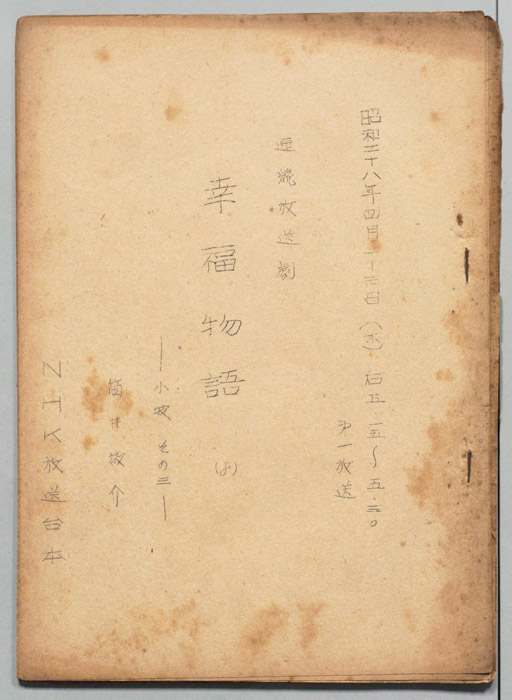 昭和二十八年四月二十二日(水) 后五.一五〜五.三〇
㐧一放送
連続放送劇
幸福物語
―小波 その三―
筒井敬介
NHK放送台本